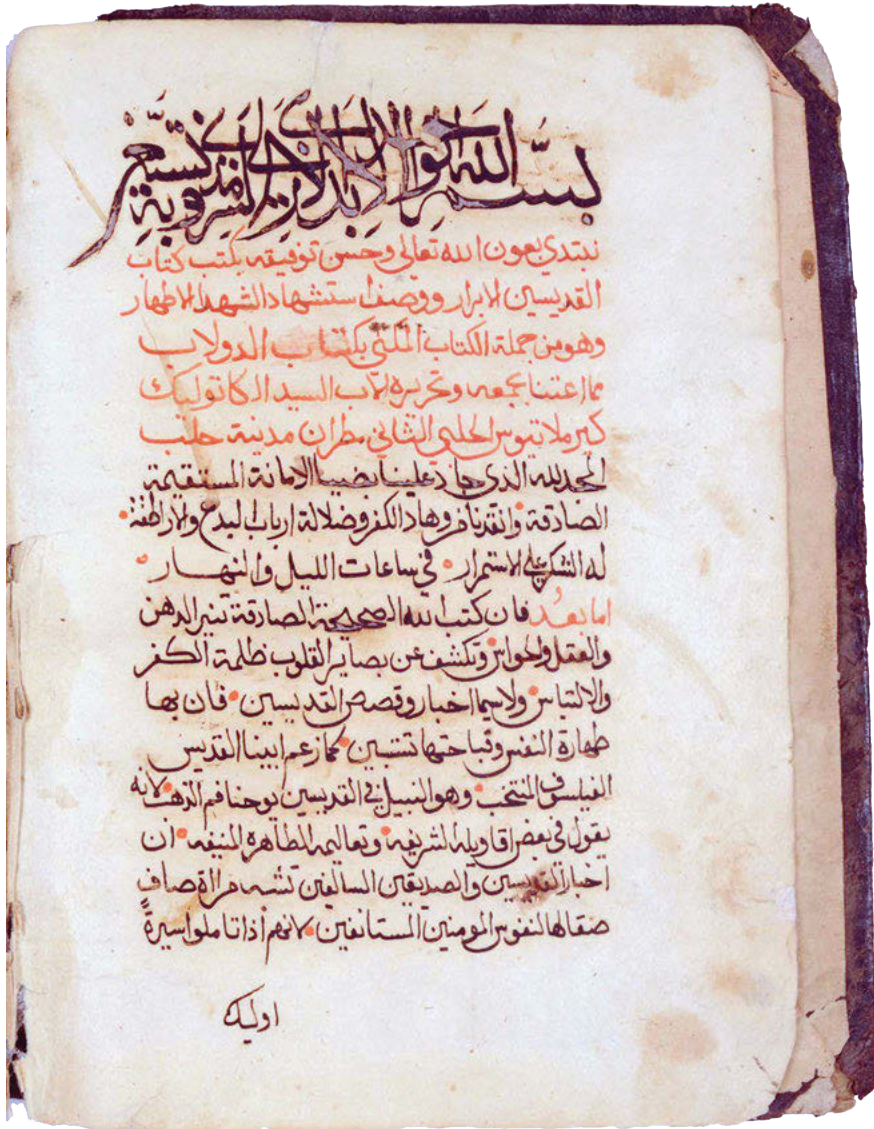 بسم الله الابدي الازلي السرمدي وبه نستعين
نبتدي بعون الله تعالى وحسن توفيقه بكتب كتاب
القديسين الابرار ووصف استشهاد الشهدا الاطهار
وهو من جملة الكتاب المكني بكتاب الدولاب
مما اعتنا بجمعه وتحريره الاب السيد الكاتوليك
كير ملاتيوس الحلبي الثاني مطران مدينة حلب
الحمد لله الذي جاد علينا بضيا الامانة المستقيمة
الصادقة وانقدنا من وهاد الكفر وضلالة ارباب البدع والاراطقة
له الشكر على الاستمرار في ساعات الليل والنهار
اما بعد فان كتب الله الصحيحة الصادقة تنير الدهن
والعقل والحواس وتكشف عن بصاير القلوب ظلمة الكفر
والالتباس ولاسيما اخبار وقصص القديسين فان بها
طهارة النفس وقباحتها تتبين كما زعم ابينا القديس
الفيلسوف المنتخب وهو النبيل في القديسين يوحنا فم الذهب لانه
يقول في بعض اقاويله الشريفه وتعاليمه الطاهره المنيفه ان
اخبار القديسين والصديقين السالفين تشبه مراة صافٍ
صقالها لنفوس المومنين المستانفين لانهم أذا تاملوا سيرة
اوليك